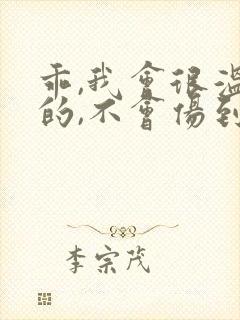 乖,我會很溫
的,不會傷到
李宗茂